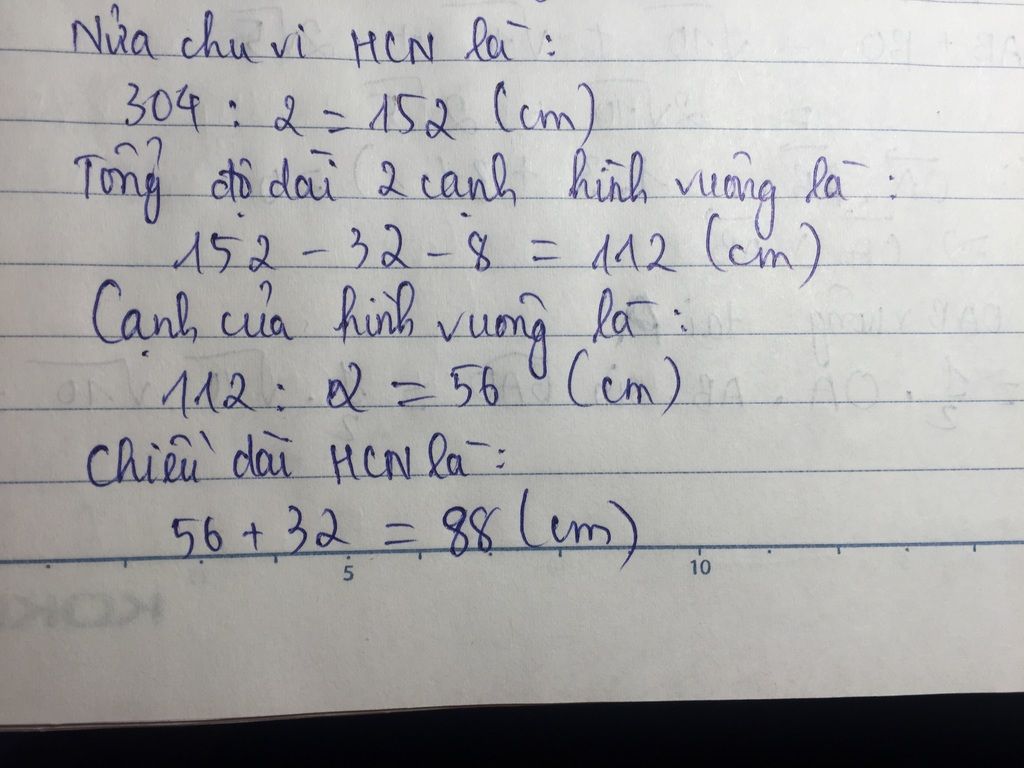 Nửa chu vi HCN là:
304 : 2 = 152 (cm)
Tổng độ dài 2 cạnh hình vuông là:
152 - 32 - 8 = 112 (cm)
Cạnh của hình vuông là:
112 : 2 = 56 (cm)
Chiều dài HCN là:
56 + 32 = 88 (cm)
5 10